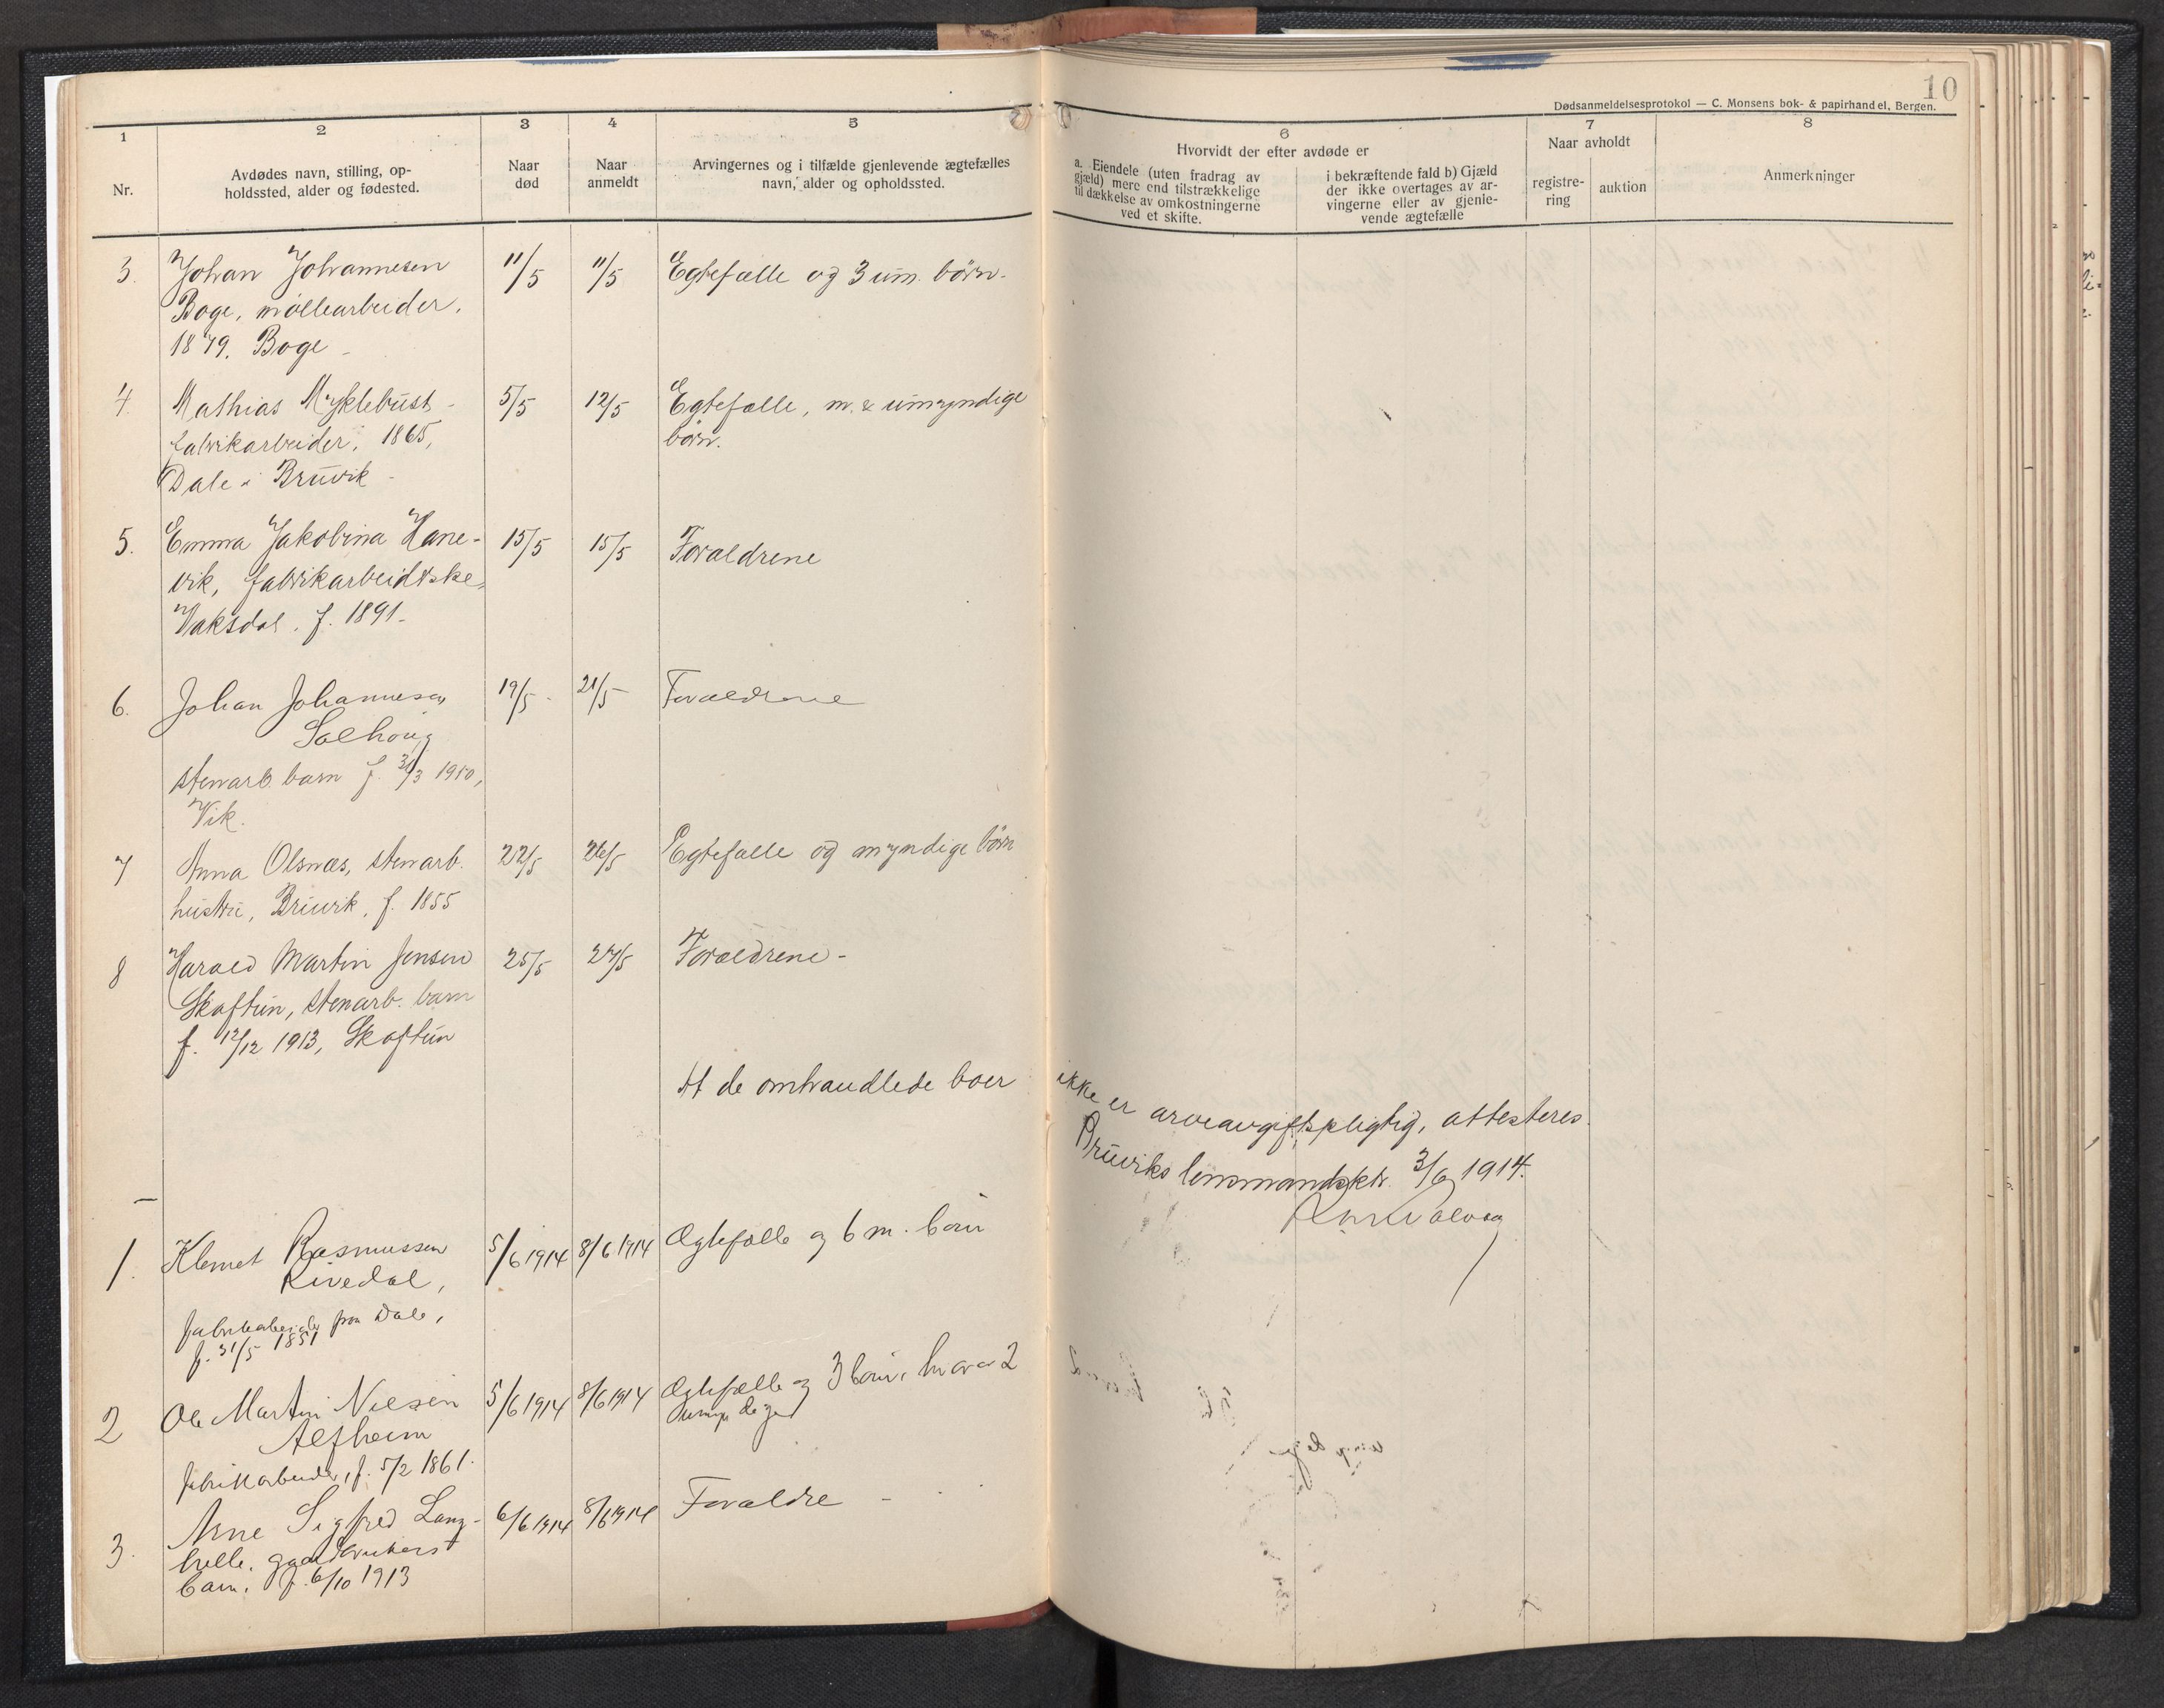 10
Dødsanmeldelsesprotokol — C. Monsens bok- & papirhandel, Bergen.
1
2
3
4
5
6
7
8
Nr.
Avdødes navn, stilling, op-
holdssted, alder og fødested.
Naar
død
Naar
anmeldt
Arvingernes og i tilfælde gjenlevende ægtefælles
navn, alder og opholdssted.
Hvorvidt der efter avdøde er
a. Eiendele (uten fradrag av
gjæld) mere end tilstrækkelige
til dækkelse av omkostningerne
ved et skifte.
i bekræftende fald b) Gjæld
der ikke overtages av ar-
vingerne eller av gjenle-
vende ægtefælle
Naar avholdt
registre-
ring
auktion
Anmerkninger
3. Johan Johannesen 11/5 11/5 Egtefælle og 3 um. børn.
Boge, møllearbeider.
1879. Boge
4. Mathias Myklebust 5/5 12/5 Egtefælle, m. & umyndige
fabrikarbeider, 1865, børn.
Dale i Bruvik
5. Emma Jakobina Hane- 15/5 15/5 Forældrene
vik, fabrikarbeiderske,
Vaksdal. f. 1891
6. Johan Johannesen 19/5 21/5 Forældrene
stenarb. barn f. 31/3 1910,
Vik.
7 Anna Olsnæs, stenarb. 22/5 26/5 Egtefælle og myndige børn
hustru, Bruvik, f. 1855
8 Harald Martin Jensen 25/5 27/5 Forældrene
Skaftun, stenarb. barn
f. 12/12 1913, Skaftun
At de omhandlede boer ikke er arveavgiftspligtig, attesteres.
Bruviks lensmandsktr. 3/6 1914.
1. Klemet Rasmussen 5/6 1914 8/6 1914 Ægtefælle og 6 m. børn
Rivedal,
fabrikarbeider fra Dale,
f. 31/5 1851
2 Ole Martin Nilsen 5/6 1914 8/6 1914 Ægtefælle og 3 børn, hvorav 2
Alfheim umyndige
fabrikarbeider, f. 5/2 1861.
3. Arne Sigfred Lang- 6/6 1914 8/6 1914 Forældre
helle, gaardbrukers
barn. f. 6/10 1913